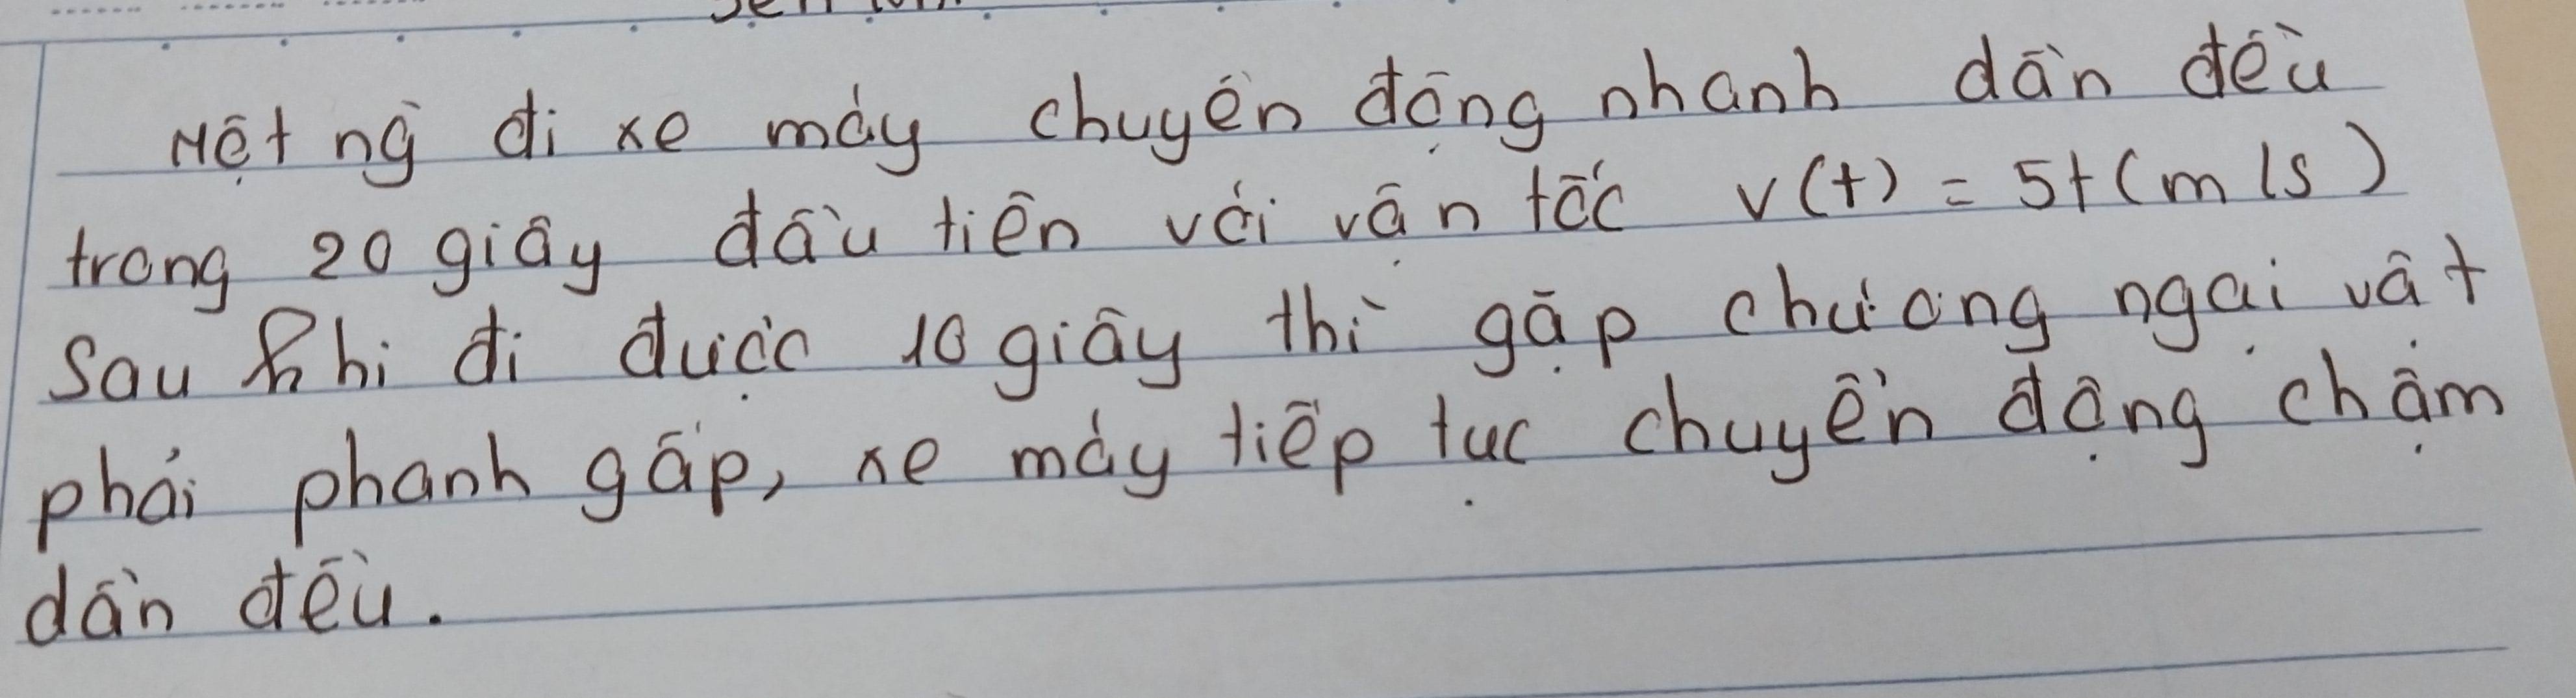 Một ng đi xe máy chuyển động nhanh dần đều
trong 20 giây đầu tiên với vận tốc v(t) = 5t (m/s)
sau khi đi được 10 giây thì gặp chướng ngại vật
phải phanh gấp, xe máy tiếp tục chuyển động chậm
dần đều.